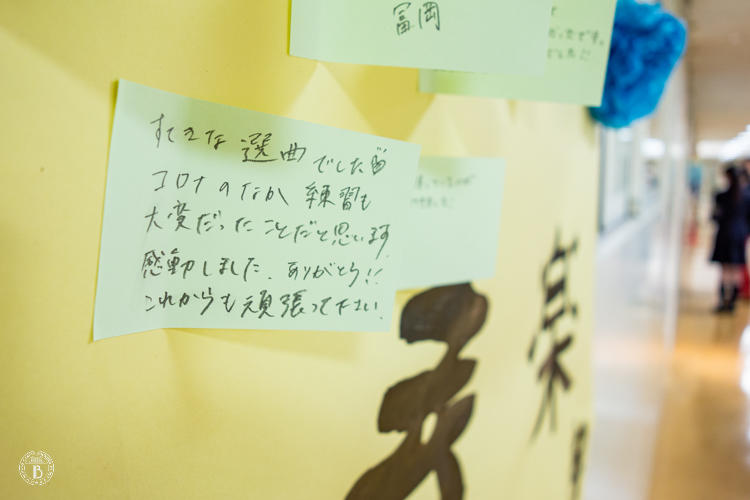 冨岡
かったです。
すてきな 選曲でした
コロナのなか 練習も
大変だったことだと思います。
感動しました。ありがとう!!
これからも頑張って下さい。
楽
B